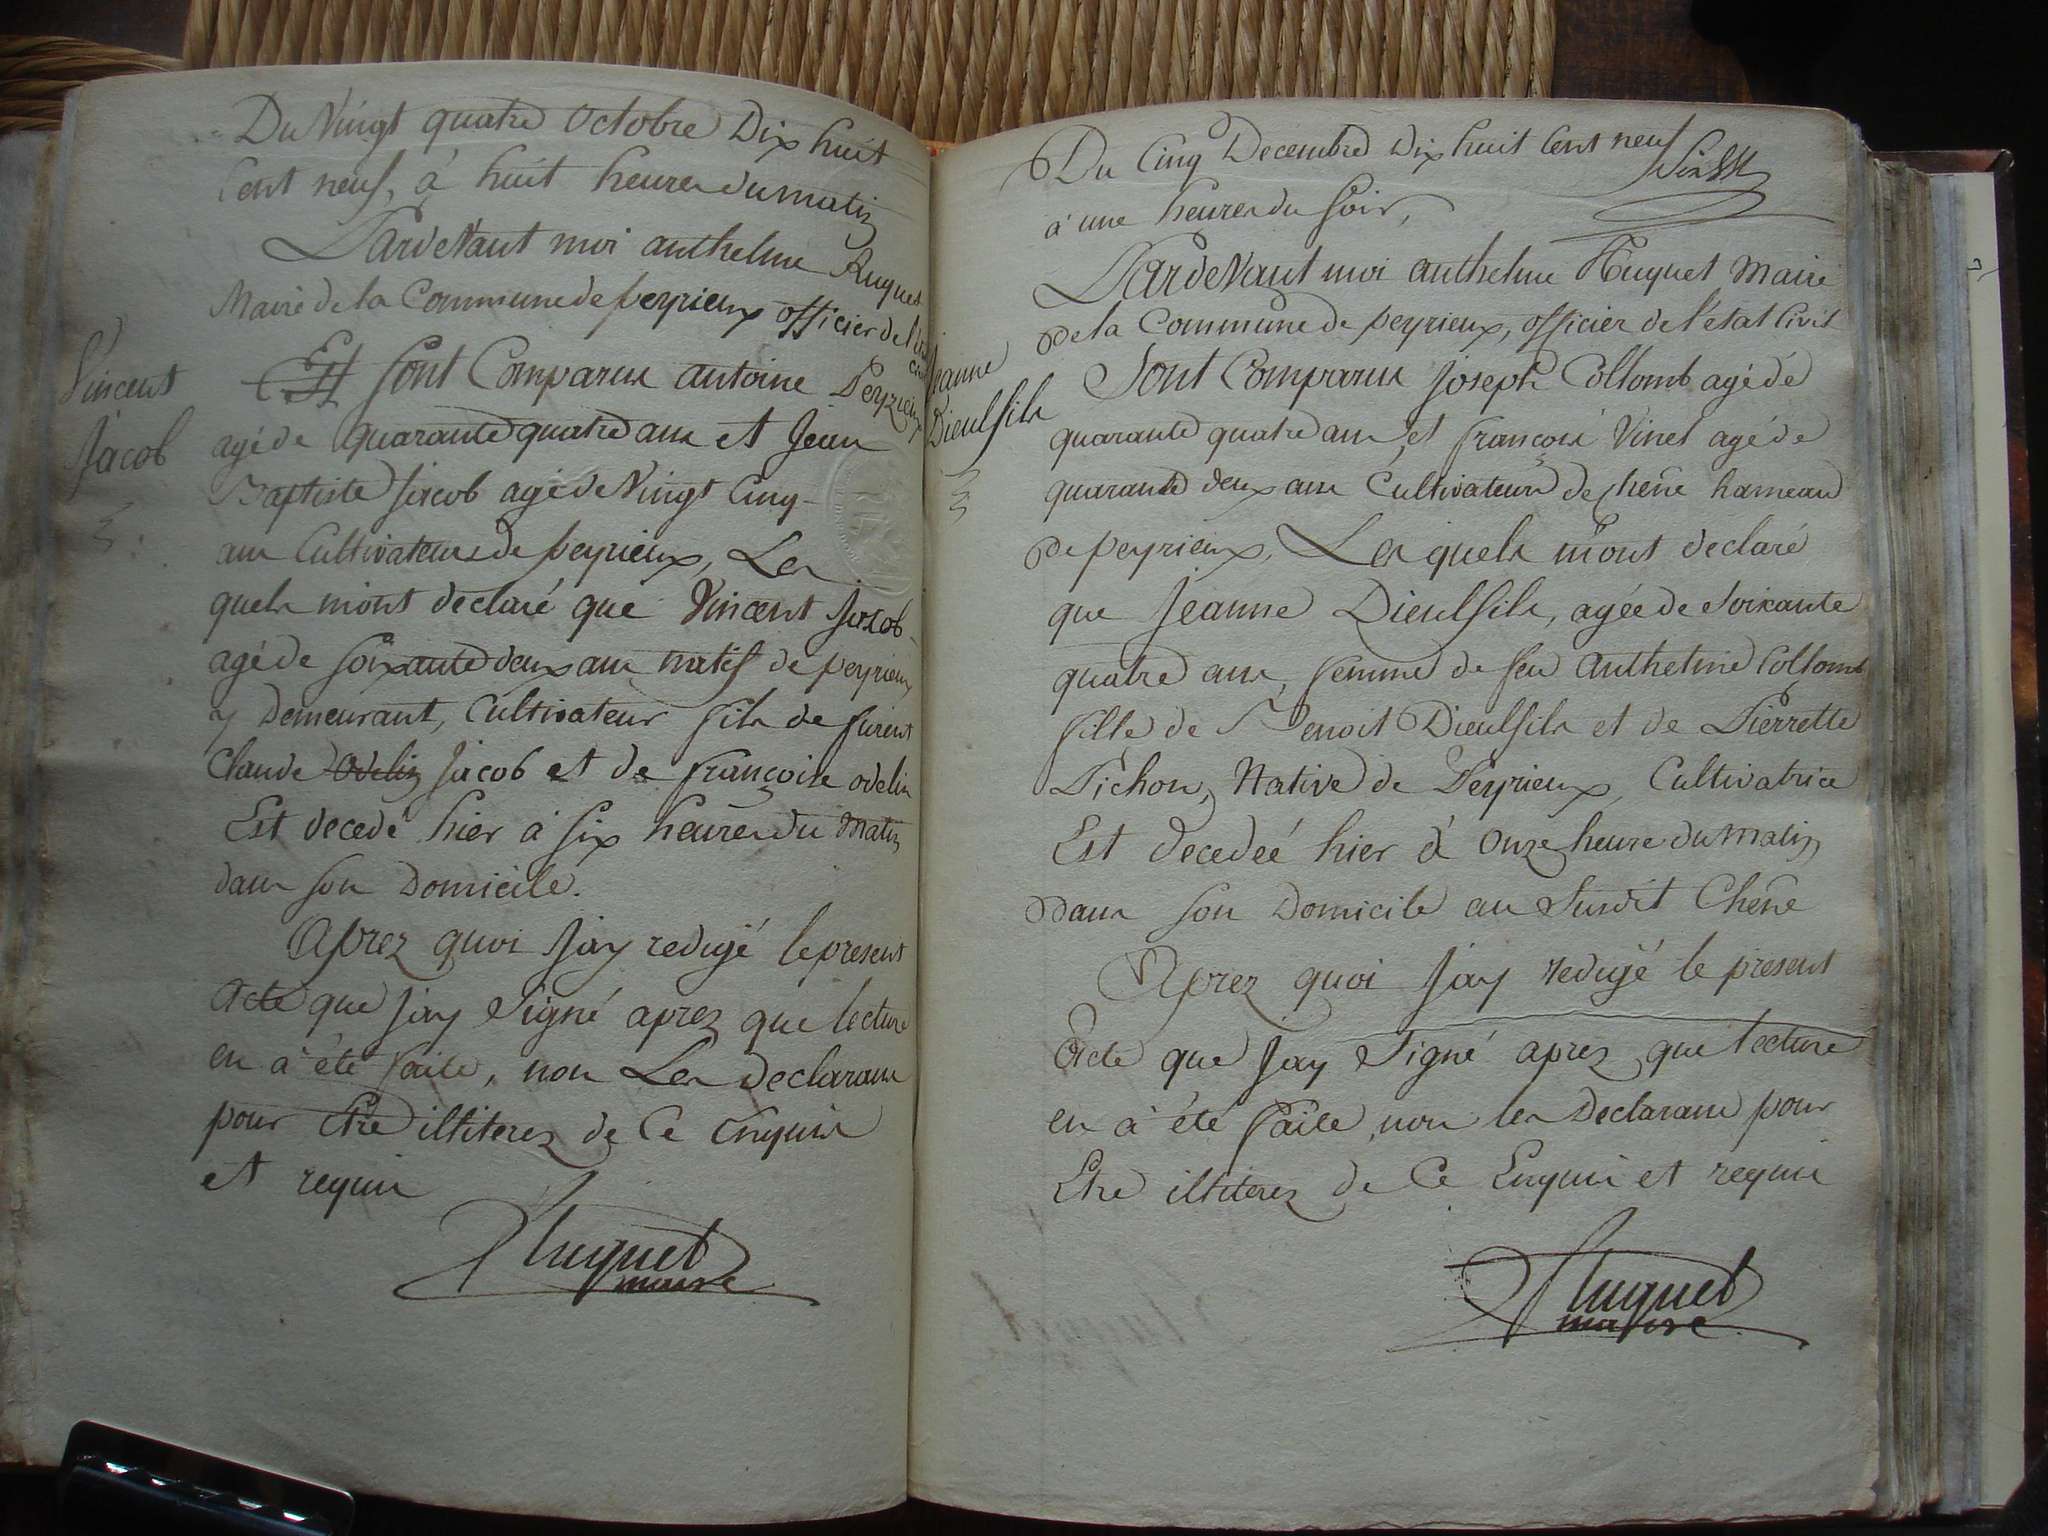 Du Vingt quatre Octobre Dix huit
Cent neuf, à huit heures du matin
Pardevant moi anthelme Huguet
Maire de la Commune de peyrieux officier de l'état
civil
Vincent
Jacob
Est sont Comparus antoine Peyrieux
agé de quarante quatre ans et Jean
Baptiste Jacob agé de Vingt Cinq
ans Cultivateurs de peyrieux, Les
quels m'ont declaré que Vincent Jacob
agé de soixante deux ans natif de peyrieux
y Demeurant, Cultivateur fils de furent
Claude Odelin Jacob et de françoise odelin
Est decedé hier à six heures du Matin
dans son Domicile.
Aprez quoi Jay redigé le present
Acte que Jay Signé aprez que lecture
en à été faite, non Les declarans
pour Etre illiterez de Ce Enquis
et requis
Huguet
maire
Du Cinq Decembre Dix huit Cent neuf
à une heures du soir,
Pardevant moi anthelme Huguet Maire
de la Commune de peyrieux, officier de l'état Civil
Jeanne
Dieulfils
Sont Comparus Joseph Collomb agé de
quarante quatre ans, et françois Vinet agé de
quarante deux ans Cultivateurs de chêne hameau
de peyrieux, Les quels m'ont declaré
que Jeanne Dieulfils, agée de soixante
quatre ans, femme de feu Anthelme Collomb
fille de Benoit Dieulfils et de Pierrette
Pichon, Native de Peyrieux, Cultivatrice
Est decedeé hier à Onze heure du Matin
dans son Domicile au Susdit Chêne
Aprez quoi Jay redigé le present
Acte que Jay Signé aprez que lecture
en à été faite, non les Declarans pour
Etre illiterez de Ce Enquis et requis
Huguet
maire